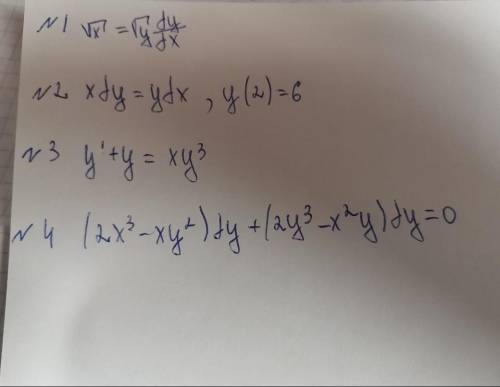 №1 √x = √y dy/dx
№2 xdy = ydx , y(2)=6
№3 y'+y = xy³
№4 (2x³-xy²)dy+(2y³-x²y)dy=0